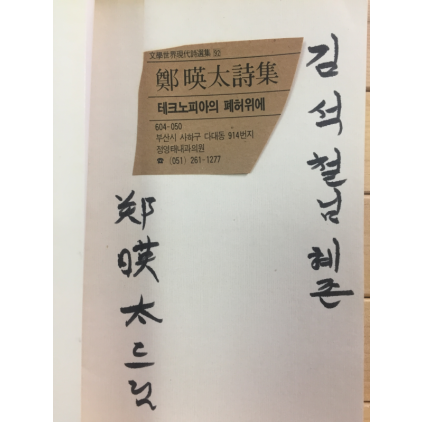 文學世界現代詩選集 92
鄭暎太詩集
테크노피아의 폐허위에
604-050
부산시 사하구 다대동 914번지
정영태내과의원
☎ (051) 261-1277
김석철님 혜존
鄭暎太 드림